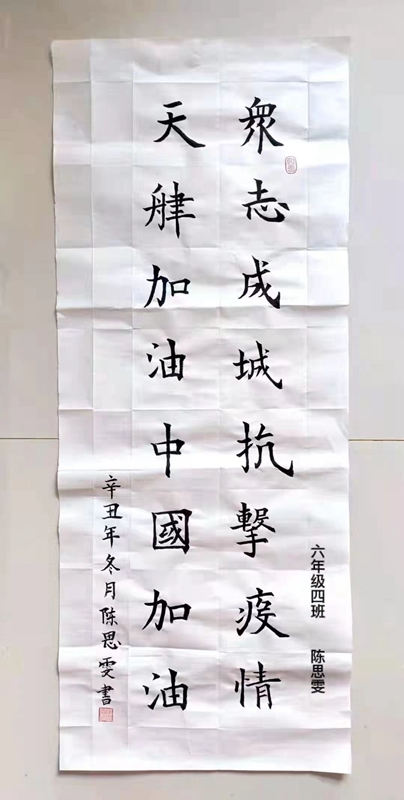 眾志成城抗擊疫情
天津加油中國加油
辛丑年冬月陈思雯書
六年级四班 陈思雯